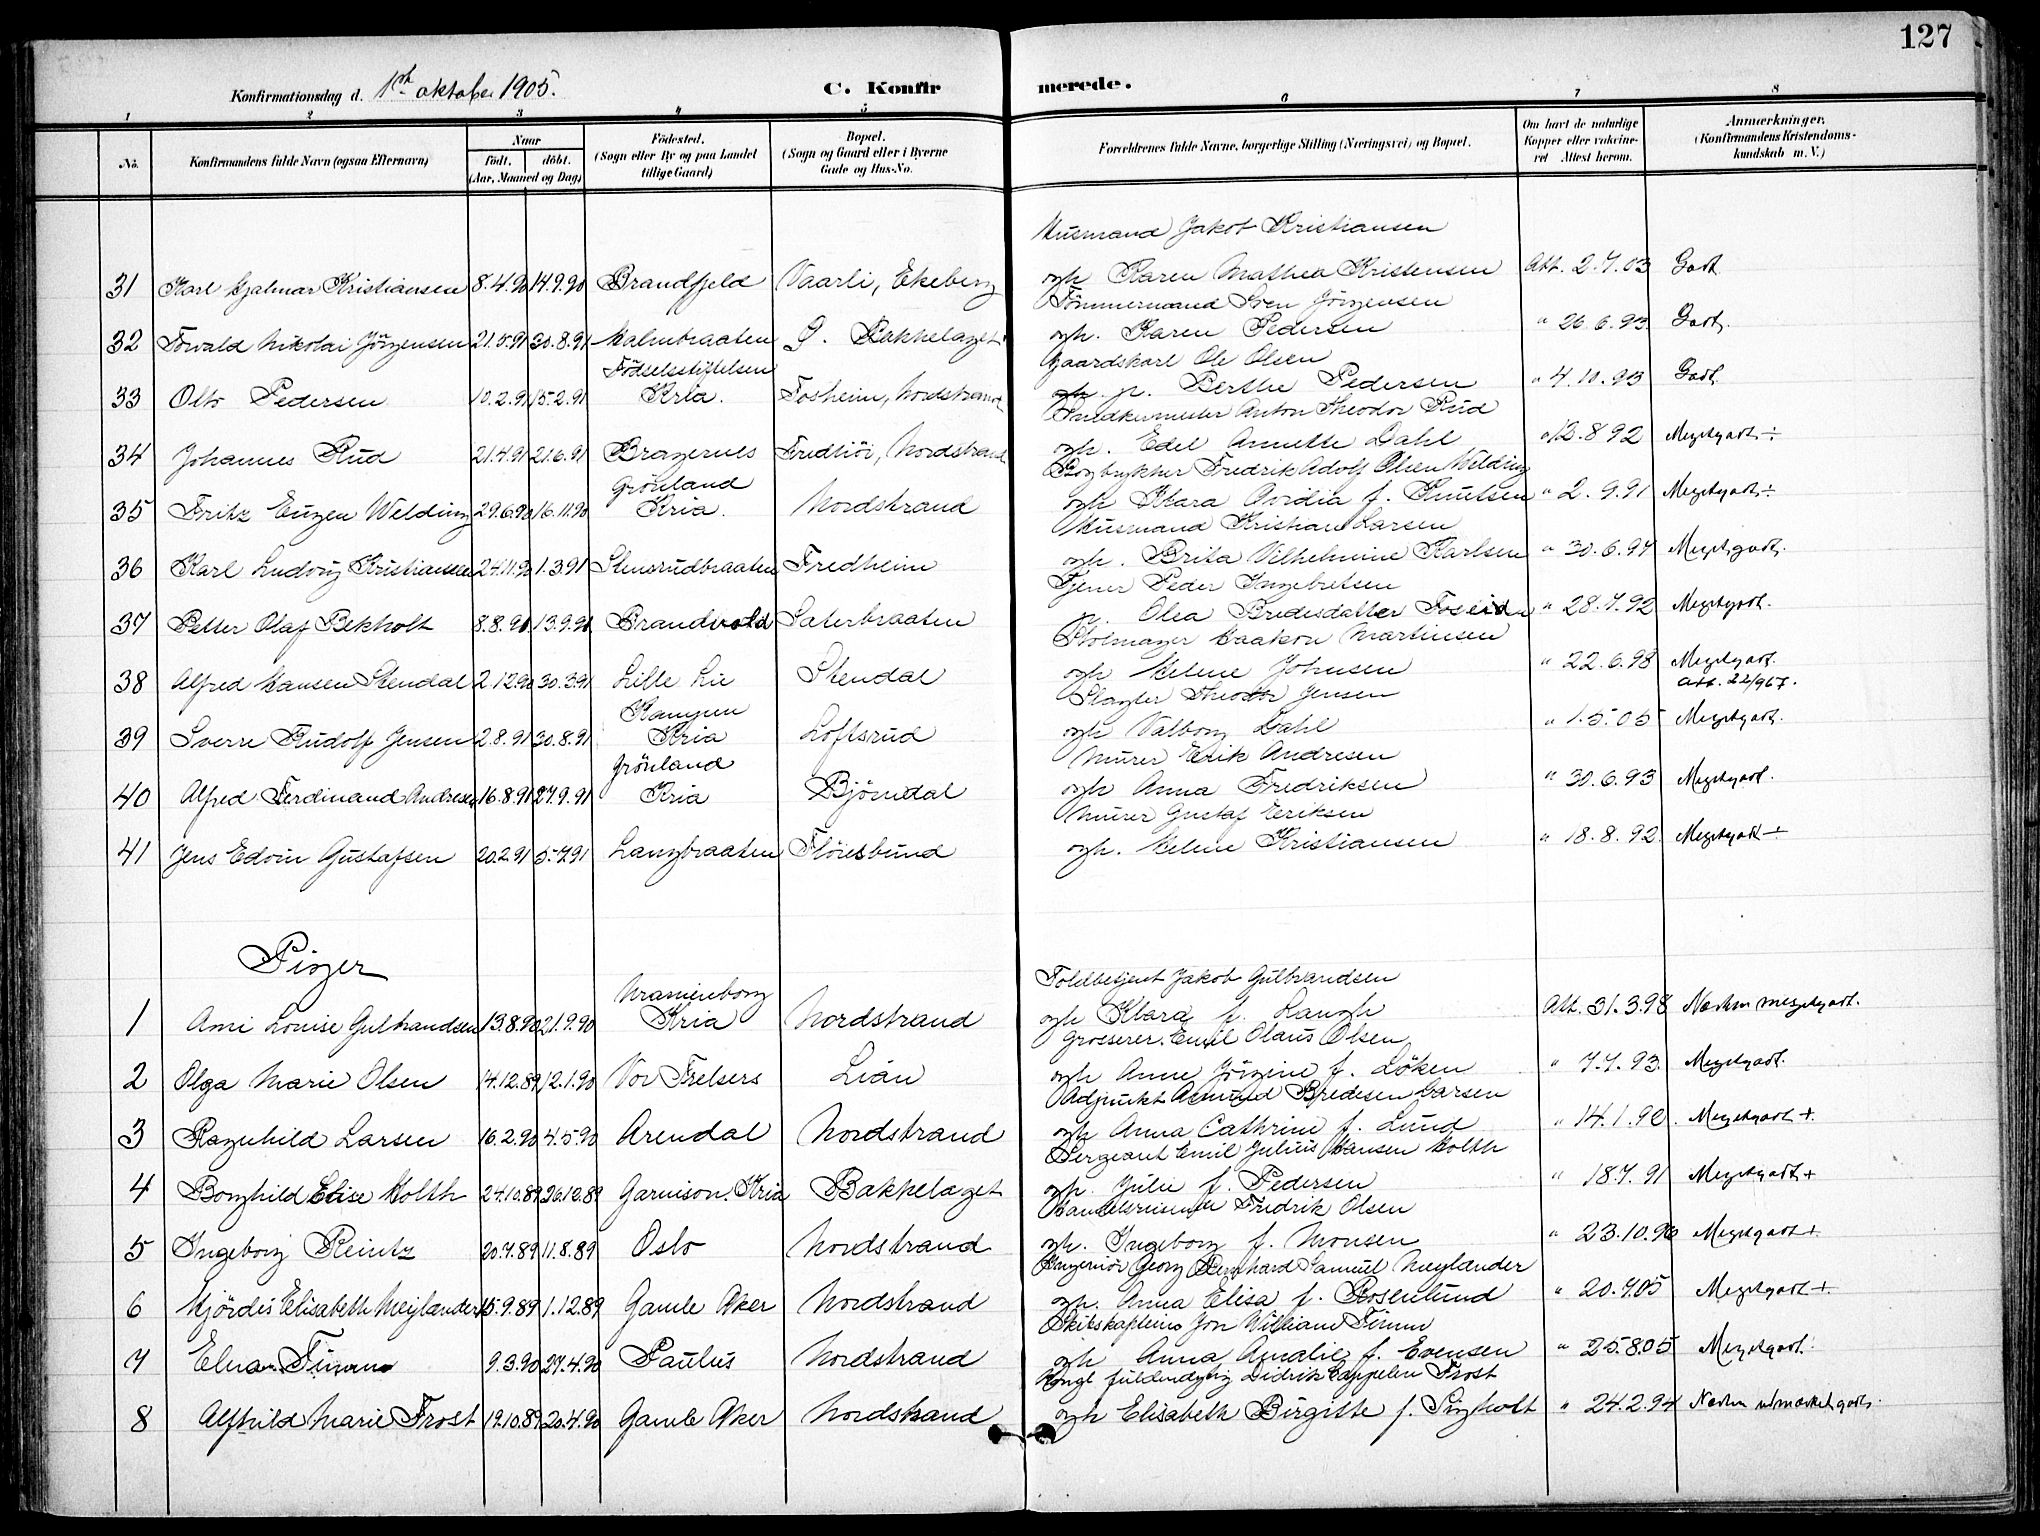 127
Konfirmationsdag d. 1ste oktober 1905.
C. Konfirmerede.
1 2 3 4 5 6 7 8
No. Konfirmandens fulde Navn (ogsaa Efternavn) Naar födt. döbt. (Aar, Maaned og Dag) Födested. (Sogn eller By og paa Landet tillige Gaard) Bopæl. (Sogn og Gaard eller i Byerne Gade og Hus-No. Forældrenes fulde Navne, borgerlige Stilling (Næringsvei) og Bopæl. Om havt de naturlige Kopper eller vakcineret Attest herom. Anmærkninger. (Konfirmandens Kristendomskundskab m. V.)
Husmand Jakob Kristiansen
31 Karl Hjalmar Kristiansen 8.4.90 14.9.90 Brandfjeld Vaarli, Ekeberg ogh Karen Mathea Kristensen Att. 2.7.03 Godt
Tömmermand Sven Jörgensen
32 Torvald Nikolai Jörgensen 21.5.91 30.8.91 Malmbraaten Ö. Bakkelaget ogh. Karen Pedersen " 26.6.93 Godt.
Födselsstiftelsen Gaardskarl Ole Olsen
33 Otto Pedersen 10.2.91 15.2.91 Kria. Fosheim, Nordstrand p. Berthe Pedersen " 4.10.93 Godt
Snedkermester Anton Theodor Rud
34 Johannes Rud 21.4.91 21.6.91 Bragernes Fredhöi, Nordstrand ogh. Edel Annette Dahl " 13.8 92 Megetgodt ÷
Grönland Bogtrykker Fredrik Adolf Olsen Welding
35 Fritz Eugen Welding 29.6.90 16.11.90 Kria. Nordstrand ogh Klara Ovidia f. Knutsen " 2.9.91 Megetgodt ÷
Husmand Kristian Larsen
36 Karl Ludvig Kristiansen 24.11.90 1.3.91 Stensrudbraaten Fredheim ogh. Brita Vilhelmine Karlsen " 30.6.97 Megetgodt.
Tjener Peder Ingebretsen
37 Petter Olaf Bekholt 8.8.91 13.9.91 Brandvold Saterbraaten p. Olea Bredesdatter Foseide " 28.7.92 Megetgodt.
Stolmager Haakon Martinsen
38 Alfred Hansen Stendal 2.12.90 30.3.91 Lille Lie Stendal ogh Helene Johnsen " 22.6.98 Megetgodt.
att. 22/9 67.
Kampen Slagter Theodor Jensen
39 Sverre Rudolf Jensen 2.8.91 30.8.91 Kria Loftsrud ogh Valborg Dahl " 1.5.05 Megetgodt.
Grönland Murer Erik Andresen
40 Alfred Ferdinand Andresen 16.8.91 27.9.91 Kria Björndal ogh Anna Fredriksen " 30.6.93 Megetgodt.
Murer Gustaf Eeriksen
41 Jens Edvin Gustafsen 20.2.91 5.7.91 Langbraaten Flöiesbund ogh. Helene Kristiansen " 18.8.92. Megetgodt ÷
Piger
Uranienborg Toldbetjent Jakob Gulbrandsen
1 Ami Louise Gulbrandsen 13.8.90 21.9.90 Kria Nordstrand ogh Klara f. Haugh Att. 31.3.98 Næsten megetgodt.
Grosserer. Emil Olaus Olsen
2 Olga Marie Olsen 14.12.89 12.1.90 Vor Frelsers Lian ogh Anne Jörgine f. Löken " 7.7.93. Megetgodt.
Adjunkt Amund Bredesen Larsen
3 Ragnhild Larsen 16.2.90 4.5.90 Arendal Nordstrand ogh Anna Cathrine f. Lund " 14.1.92. Megetgodt +
Sergeant Emil Julius Hansen Holth
4 Borghild Elise Holth 24.10.89 26.12.89 Garnison. Kria Bakkelaget ogh. Julie f. Pedersen " 18.7.91 Megetgodt +
Handelsreisende Fredrik Olsen
5 Ingeborg Reintz 20.7.89 11.8.89 Oslo Nordstrand ogh. Ingeborg f. Monsen " 23.10.96 Megetgodt +
Ingeniör Georg Bernhard Samuel Meylander
6 Hjördis Elisabeth Meylander 15.9.89 1.12.89 Gamle Aker Nordstrand ogh. Anna Elisa f. Rosenlund " 20.7.05 Megetgodt +
Skibskaptein Jon William Timm
7 Elna Timm 9.3.90 27.4.90 Paulus Nordstrand ogh Anna Amalie f. Evensen " 25.8.05 Megetgodt.
Kongl fuldmægtig Didrik Cappelen Frost
8 Alfhild Marie Frost 19.10.89 20.4.90 Gamle Aker Nordstrand ogh Elisabeth Birgitte f. Pigholt " 24.2.94 Næsten udmærket godt.